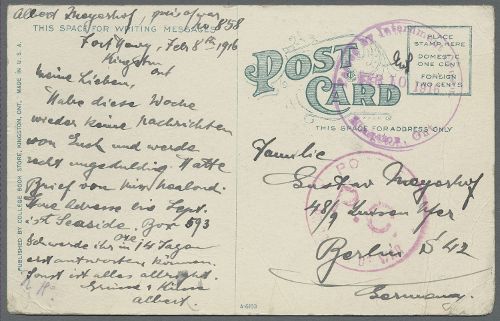 Albert Meyerhof, pris of war
No 858
THIS SPACE FOR WRITING MESSAGES
Fort Henry, Feb 8th 1916
Kingston
Ont
Meine Lieben,
Habe diese Woche
wieder keine Nachrichten
von Euch und werde
recht ungeduldig. Hatte
Brief von Miss
Ihre Adresse bis Sept.
ist Seaside. Box 593
Werde ihr in 14 Tagen
erst antworten können.
Sonst ist alles allright.
Grüsse & Küsse
Albert.
PUBLISHED BY COLLEGE BOOK STORE, KINGSTON, ONT. MADE IN U.S.A.
POST
CARD
PLACE
STAMP HERE
DOMESTIC
ONE CENT
FOREIGN
TWO CENTS
FEB 10 1916
Kingston, Ont
THIS SPACE FOR ADDRESS ONLY
Familie
Gustav Meyerhof
48/9 Luisen Ufer
Berlin
42
Germany
P.C.
A-6103